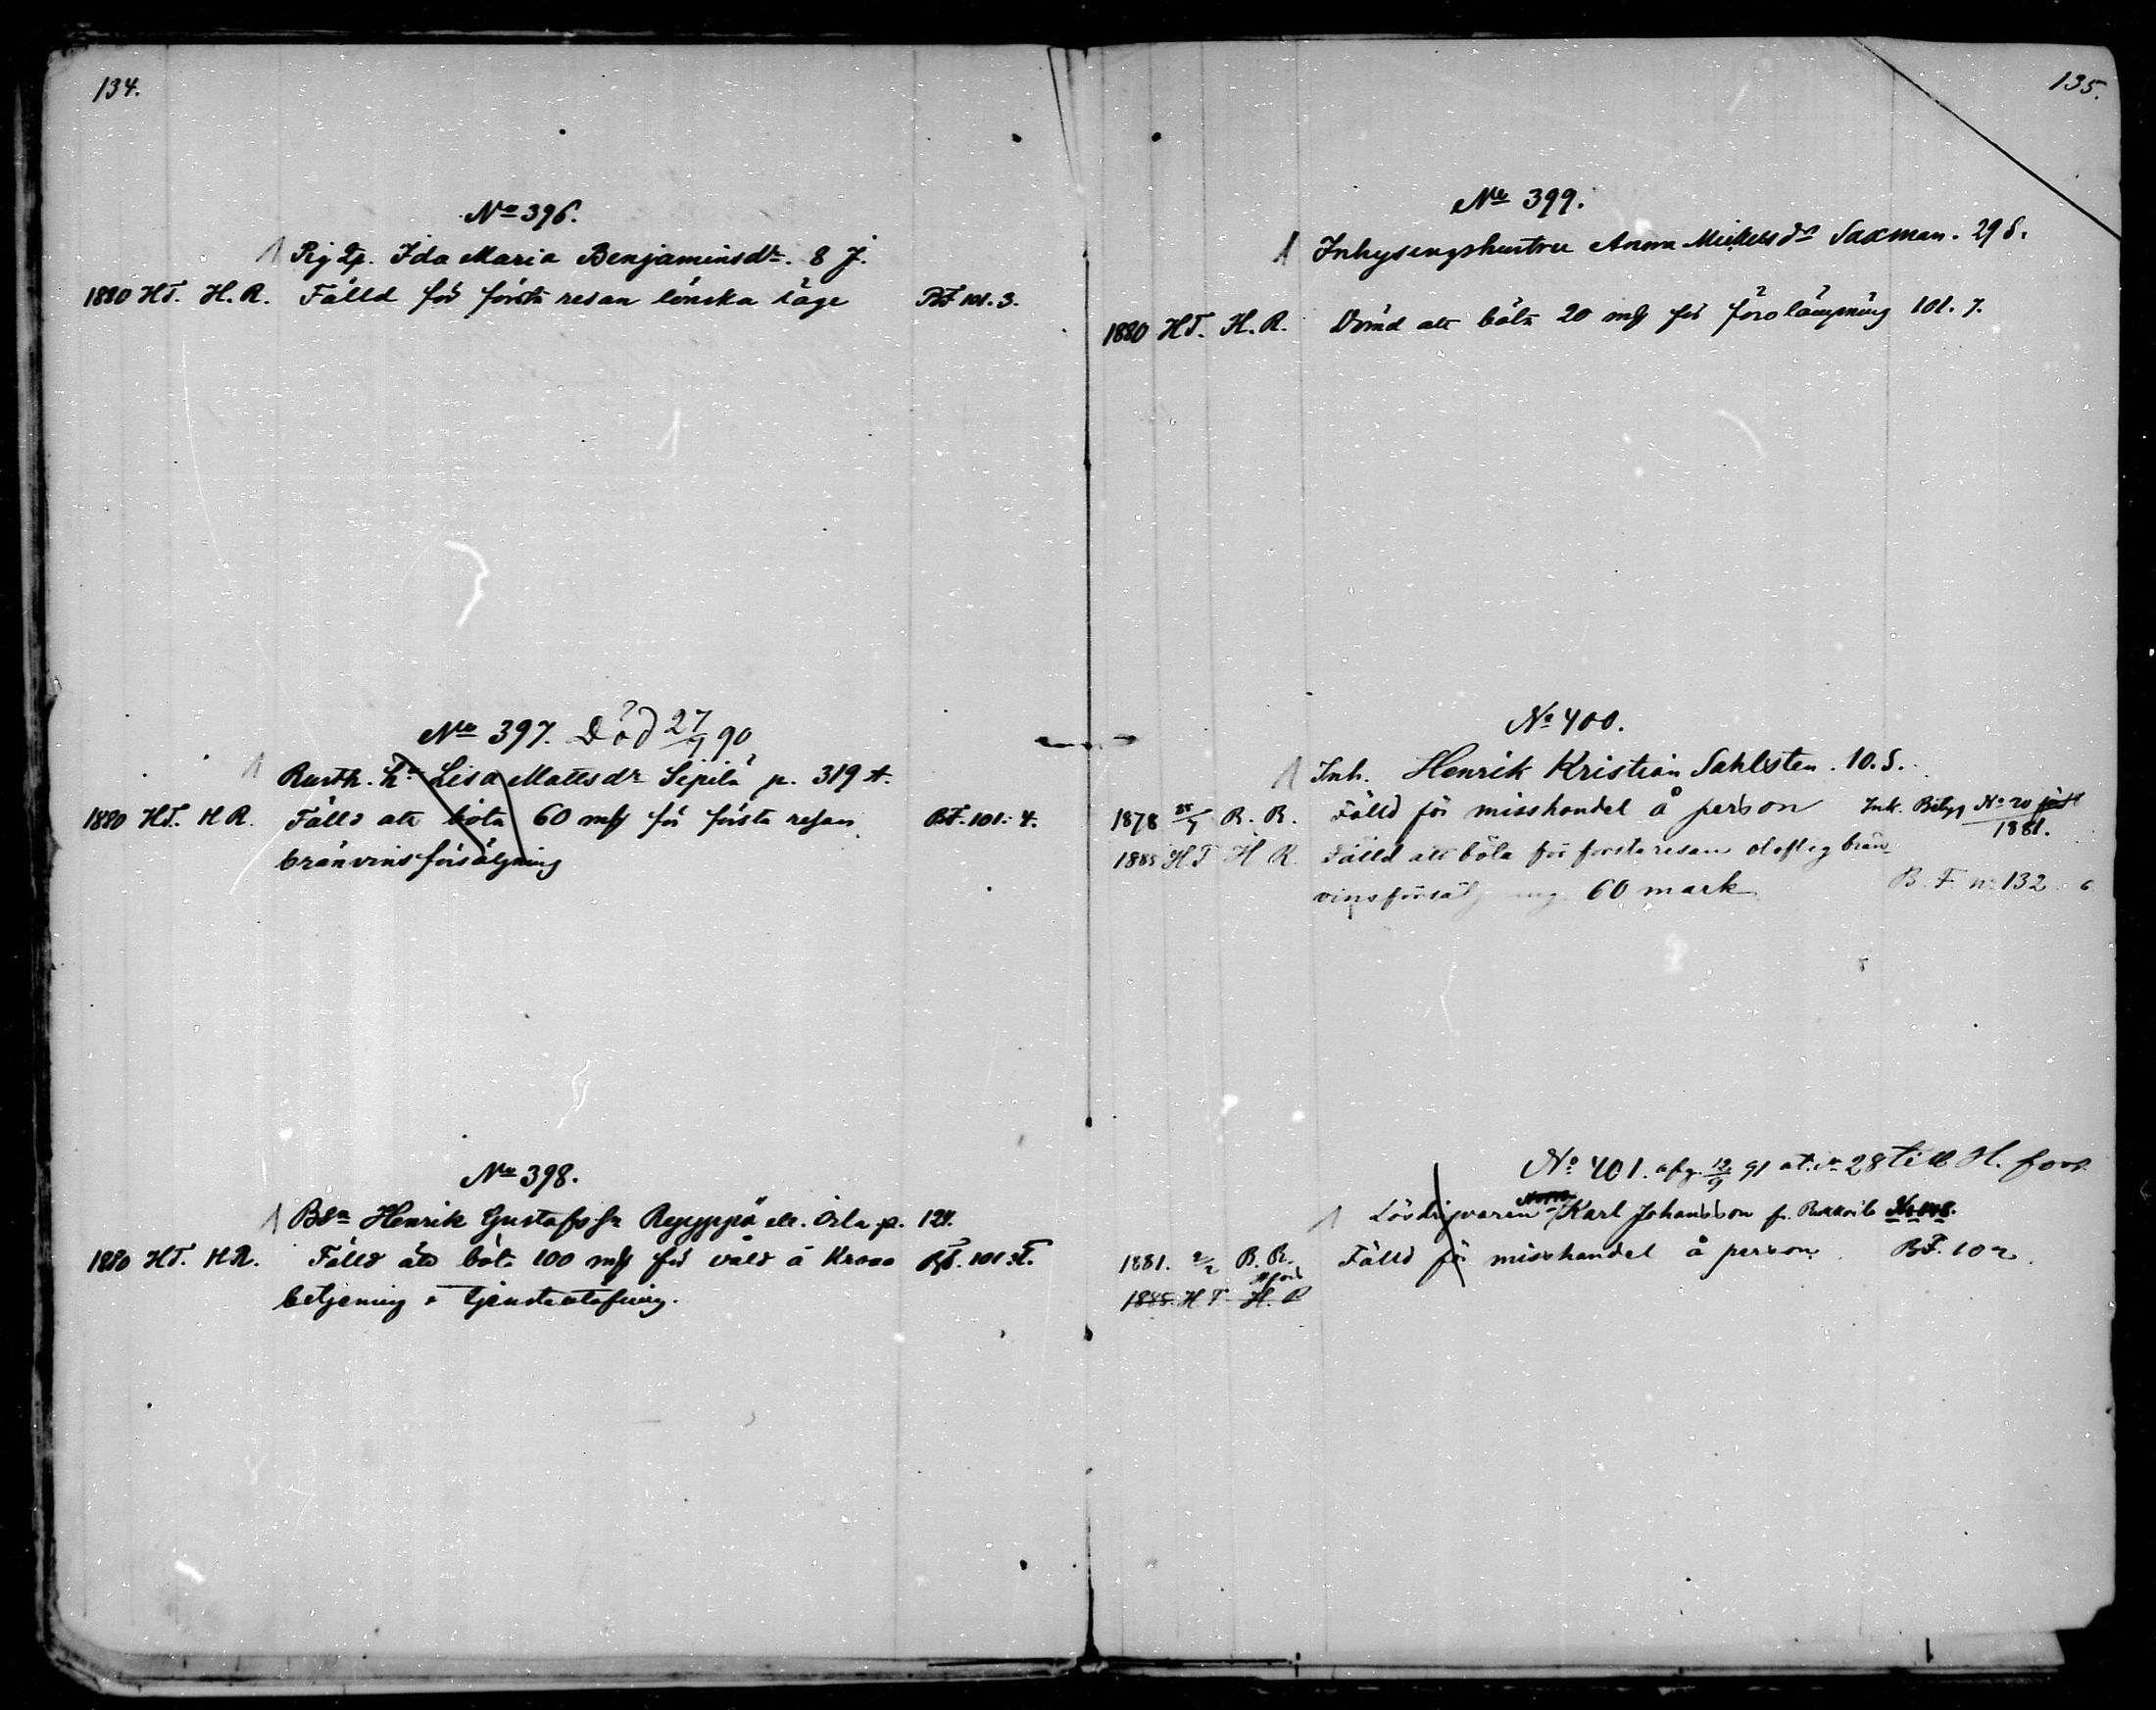 134.
No 396.
Pig Ida Maria Benjaminsdr. 8 J.
1880 HT. H. R. Fälld för första resan lönska läge BF 101. 3.
No 397. Död 27/9 90
Lisa Mattsdr Sipilä p. 319 A.
1880 HT. H R. Fälld att böta 60 mk för första resan BF. 101. 4.
bränvinsförsäljning
No 398.
Bsn Henrik Gustafsson 124.
1880 HT. H R. Fälld att böta 100 mk för våld å Krono
betjening
135.
No 399.
Inhysingshustru Anna Mickelsdr Saxman. 29 S.
1880 HT. H. R. Dömd att böta 20 mk för förolämpning 101. 7.
No 400.
Inh. Henrik Kristian Sahlsten. 10. S.
1878 R. R. Fälld för misshandel å person Ink. Betyg No 20
1881.
1885 HT H R. Fälld att böta för första resan olaflig brän-
vinsförsäljning 60 mark B. F. n: 132
No 401. afg. 12/9 91 at. No 28 till H. fors
Karl Johansson
1881. 2/2 R. R. Fälld för misshandel å person. BF. 102.
1885. HT H. R